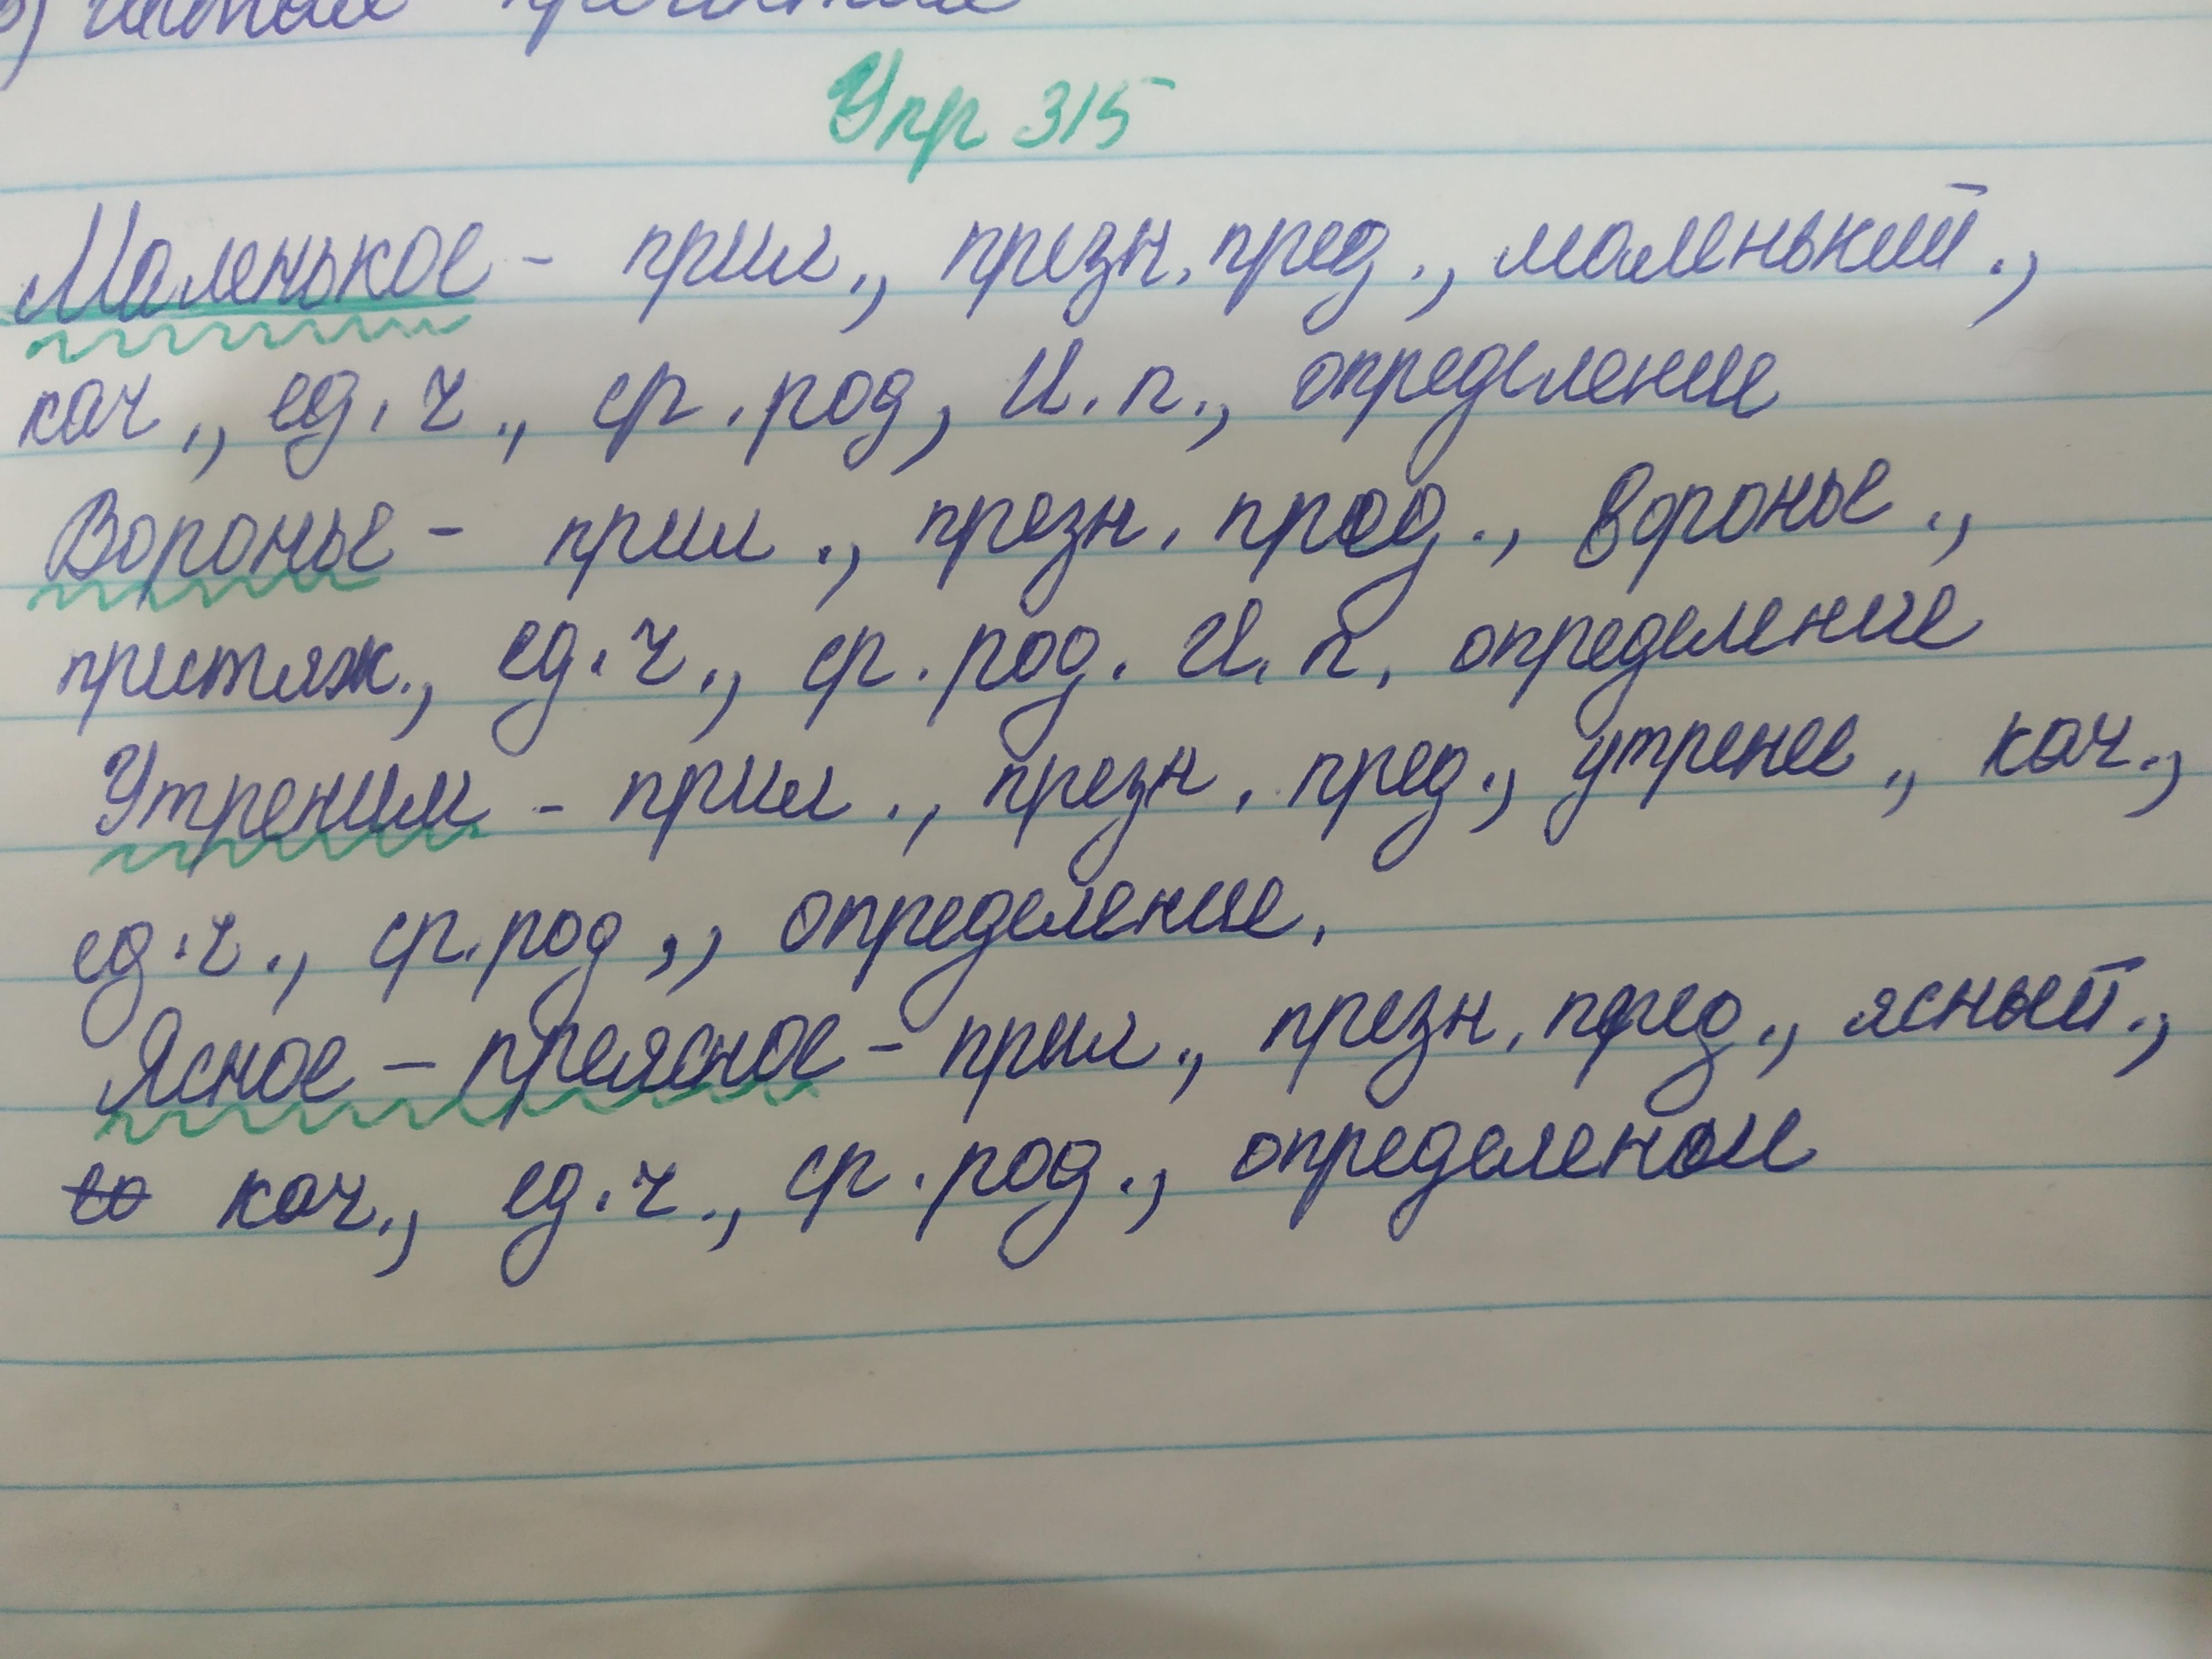 Упр 315
Маленькое - прил., презн. пред., маленький.,
кач., ед. ч., ср. род, И. п., определение
Воронье - прил., презн. пред., воронье.,
притяж., ед. ч., ср. род. И. п. определение
Утреним - прил., презн. пред., утренее., кач.,
ед. ч., ср. род,, определение.
Ясное - преясное - прил., презн. пред., ясный.,
кач., ед. ч., ср. род., определение